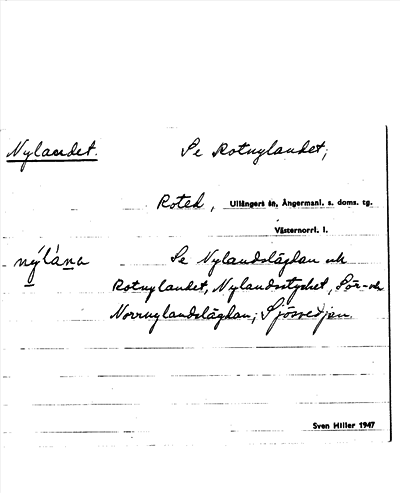 Nylandet. Se Rotnylandet,
Roted, Ullångers sn, Ångermanl. s. doms. tg.
Västernorrl. l.
nýlána Se Nylandslägdan och
Rotnylandet, Nylandsstycket, Sör- och
Norrnylandslägdan, Sjösvedjan.
Sven Hiller 1947